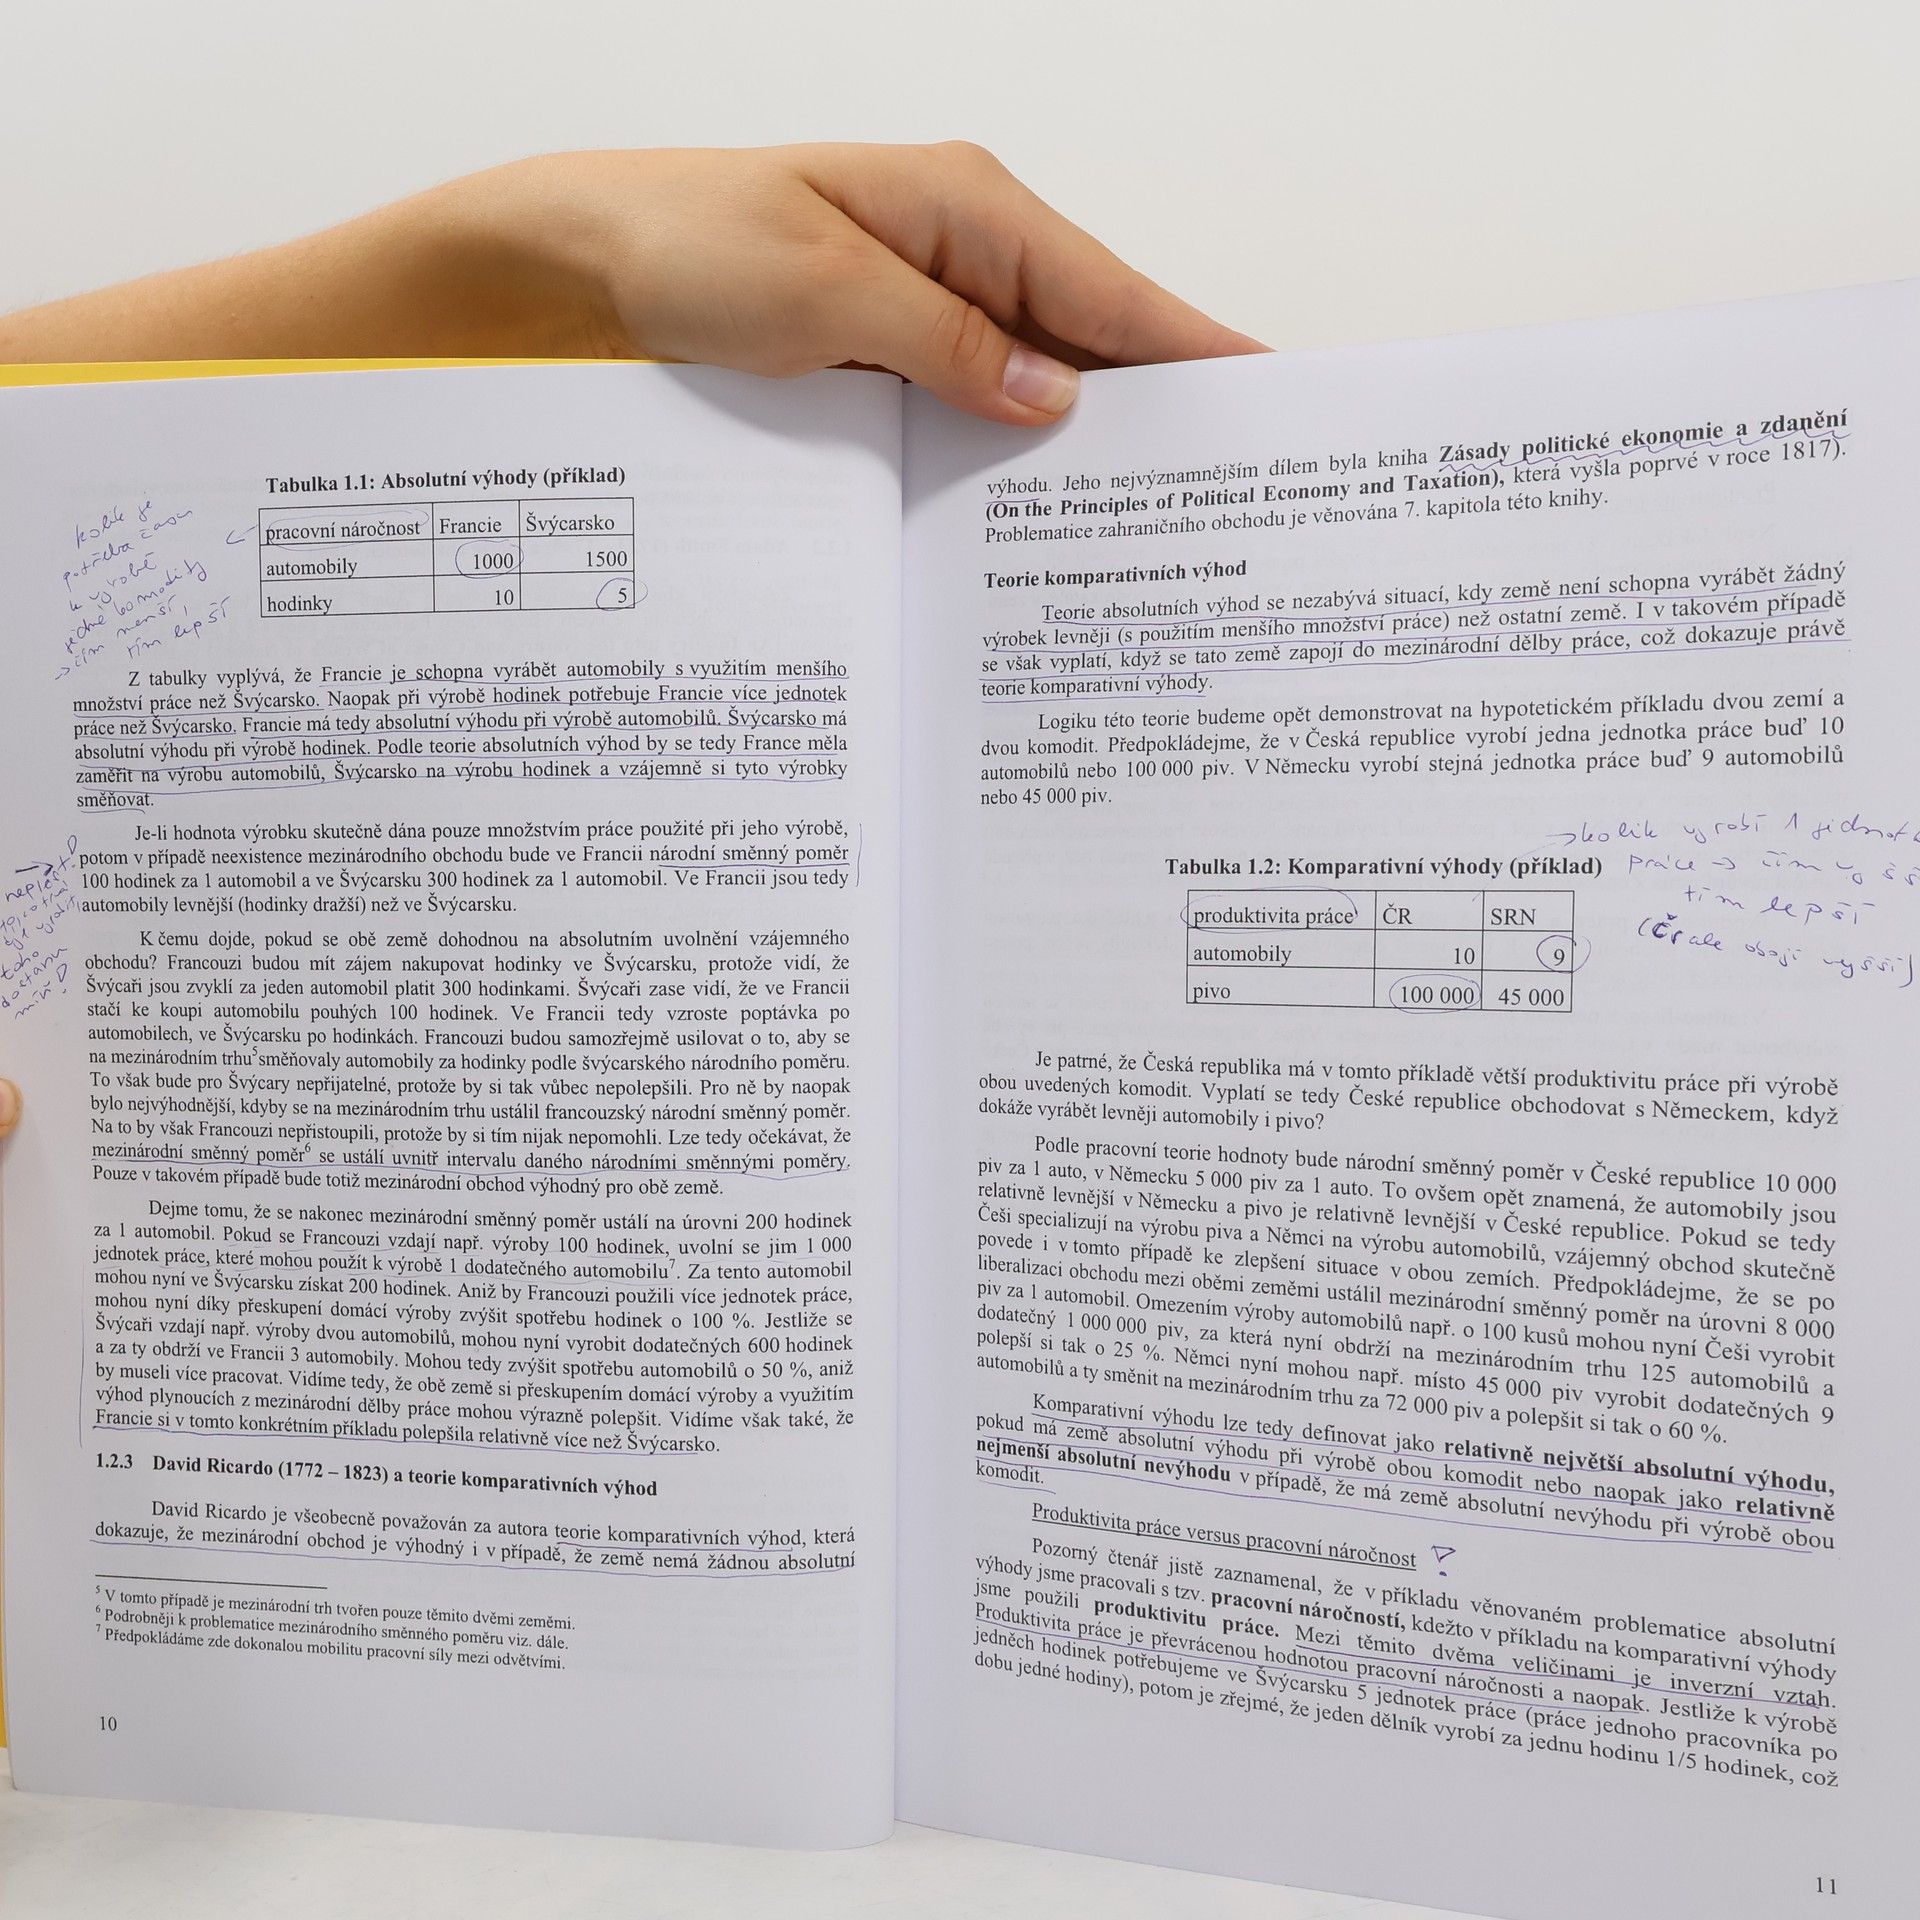 Tabulka 1.1: Absolutní výhody (příklad)
pracovní náročnost Francie Švýcarsko
automobily 1000 1500
hodinky 10 5
kolik je
potřeba času
k výrobě
jedné komodity
→ čím menší,
tím lepší
Z tabulky vyplývá, že Francie je schopna vyrábět automobily s využitím menšího
množství práce než Švýcarsko. Naopak při výrobě hodinek potřebuje Francie více jednotek
práce než Švýcarsko. Francie má tedy absolutní výhodu při výrobě automobilů. Švýcarsko má
absolutní výhodu při výrobě hodinek. Podle teorie absolutních výhod by se tedy France měla
zaměřit na výrobu automobilů, Švýcarsko na výrobu hodinek a vzájemně si tyto výrobky
směňovat.
Je-li hodnota výrobku skutečně dána pouze množstvím práce použité při jeho výrobě,
potom v případě neexistence mezinárodního obchodu bude ve Francii národní směnný poměr
100 hodinek za 1 automobil a ve Švýcarsku 300 hodinek za 1 automobil. Ve Francii jsou tedy
automobily levnější (hodinky dražší) než ve Švýcarsku.
toho
dostanu
míň
K čemu dojde, pokud se obě země dohodnou na absolutním uvolnění vzájemného
obchodu? Francouzi budou mít zájem nakupovat hodinky ve Švýcarsku, protože vidí, že
Švýcaři jsou zvyklí za jeden automobil platit 300 hodinkami. Švýcaři zase vidí, že ve Francii
stačí ke koupi automobilu pouhých 100 hodinek. Ve Francii tedy vzroste poptávka po
automobilech, ve Švýcarsku po hodinkách. Francouzi budou samozřejmě usilovat o to, aby se
na mezinárodním trhu⁵směňovaly automobily za hodinky podle švýcarského národního poměru.
To však bude pro Švýcary nepřijatelné, protože by si tak vůbec nepolepšili. Pro ně by naopak
bylo nejvýhodnější, kdyby se na mezinárodním trhu ustálil francouzský národní směnný poměr.
Na to by však Francouzi nepřistoupili, protože by si tím nijak nepomohli. Lze tedy očekávat, že
mezinárodní směnný poměr⁶ se ustálí uvnitř intervalu daného národními směnnými poměry.
Pouze v takovém případě bude totiž mezinárodní obchod výhodný pro obě země.
Dejme tomu, že se nakonec mezinárodní směnný poměr ustálí na úrovni 200 hodinek
za 1 automobil. Pokud se Francouzi vzdají např. výroby 100 hodinek, uvolní se jim 1 000
jednotek práce, které mohou použít k výrobě 1 dodatečného automobilu⁷. Za tento automobil
mohou nyní ve Švýcarsku získat 200 hodinek. Aniž by Francouzi použili více jednotek práce,
mohou nyní díky přeskupení domácí výroby zvýšit spotřebu hodinek o 100 %. Jestliže se
Švýcaři vzdají např. výroby dvou automobilů, mohou nyní vyrobit dodatečných 600 hodinek
a za ty obdrží ve Francii 3 automobily. Mohou tedy zvýšit spotřebu automobilů o 50 %, aniž
by museli více pracovat. Vidíme tedy, že obě země si přeskupením domácí výroby a využitím
výhod plynoucích z mezinárodní dělby práce mohou výrazně polepšit. Vidíme však také, že
Francie si v tomto konkrétním příkladu polepšila relativně více než Švýcarsko.
1.2.3 David Ricardo (1772 – 1823) a teorie komparativních výhod
David Ricardo je všeobecně považován za autora teorie komparativních výhod, která
dokazuje, že mezinárodní obchod je výhodný i v případě, že země nemá žádnou absolutní
⁵ V tomto případě je mezinárodní trh tvořen pouze těmito dvěmi zeměmi.
⁶ Podrobněji k problematice mezinárodního směnného poměru viz. dále.
⁷ Předpokládáme zde dokonalou mobilitu pracovní síly mezi odvětvími.
10
výhodu. Jeho nejvýznamnějším dílem byla kniha Zásady politické ekonomie a zdanění
(On the Principles of Political Economy and Taxation), která vyšla poprvé v roce 1817).
Problematice zahraničního obchodu je věnována 7. kapitola této knihy.
Teorie komparativních výhod
Teorie absolutních výhod se nezabývá situací, kdy země není schopna vyrábět žádný
výrobek levněji (s použitím menšího množství práce) než ostatní země. I v takovém případě
se však vyplatí, když se tato země zapojí do mezinárodní dělby práce, což dokazuje právě
teorie komparativní výhody.
Logiku této teorie budeme opět demonstrovat na hypotetickém příkladu dvou zemí a
dvou komodit. Předpokládejme, že v Česká republice vyrobí jedna jednotka práce buď 10
automobilů nebo 100 000 piv. V Německu vyrobí stejná jednotka práce buď 9 automobilů
nebo 45 000 piv.
→ kolik vyrobí 1 jednotk
práce → čím vyšší
tím lepší
(ČR ale obojí vyšší)
Tabulka 1.2: Komparativní výhody (příklad)
produktivita práce ČR SRN
automobily 10 9
pivo 100 000 45 000
Je patrné, že Česká republika má v tomto příkladě větší produktivitu práce při výrobě
obou uvedených komodit. Vyplatí se tedy České republice obchodovat s Německem, když
dokáže vyrábět levněji automobily i pivo?
Podle pracovní teorie hodnoty bude národní směnný poměr v České republice 10 000
piv za 1 auto, v Německu 5 000 piv za 1 auto. To ovšem opět znamená, že automobily jsou
relativně levnější v Německu a pivo je relativně levnější v České republice. Pokud se tedy
Češi specializují na výrobu piva a Němci na výrobu automobilů, vzájemný obchod skutečně
povede i v tomto případě ke zlepšení situace v obou zemích. Předpokládejme, že se po
liberalizaci obchodu mezi oběmi zeměmi ustálil mezinárodní směnný poměr na úrovni 8 000
piv za 1 automobil. Omezením výroby automobilů např. o 100 kusů mohou nyní Češi vyrobit
dodatečný 1 000 000 piv, za která nyní obdrží na mezinárodním trhu 125 automobilů a
polepší si tak o 25 %. Němci nyní mohou např. místo 45 000 piv vyrobit dodatečných 9
automobilů a ty směnit na mezinárodním trhu za 72 000 piv a polepšit si tak o 60 %.
Komparativní výhodu lze tedy definovat jako relativně největší absolutní výhodu,
pokud má země absolutní výhodu při výrobě obou komodit nebo naopak jako relativně
nejmenší absolutní nevýhodu v případě, že má země absolutní nevýhodu při výrobě obou
komodit.
Produktivita práce versus pracovní náročnost !
Pozorný čtenář jistě zaznamenal, že v příkladu věnovaném problematice absolutní
výhody jsme pracovali s tzv. pracovní náročností, kdežto v příkladu na komparativní výhody
jsme použili produktivitu práce. Mezi těmito dvěma veličinami je inverzní vztah.
Produktivita práce je převrácenou hodnotou pracovní náročnosti a naopak. Jestliže k výrobě
jedněch hodinek potřebujeme ve Švýcarsku 5 jednotek práce (práce jednoho pracovníka po
dobu jedné hodiny), potom je zřejmé, že jeden dělník vyrobí za jednu hodinu 1/5 hodinek, což
11